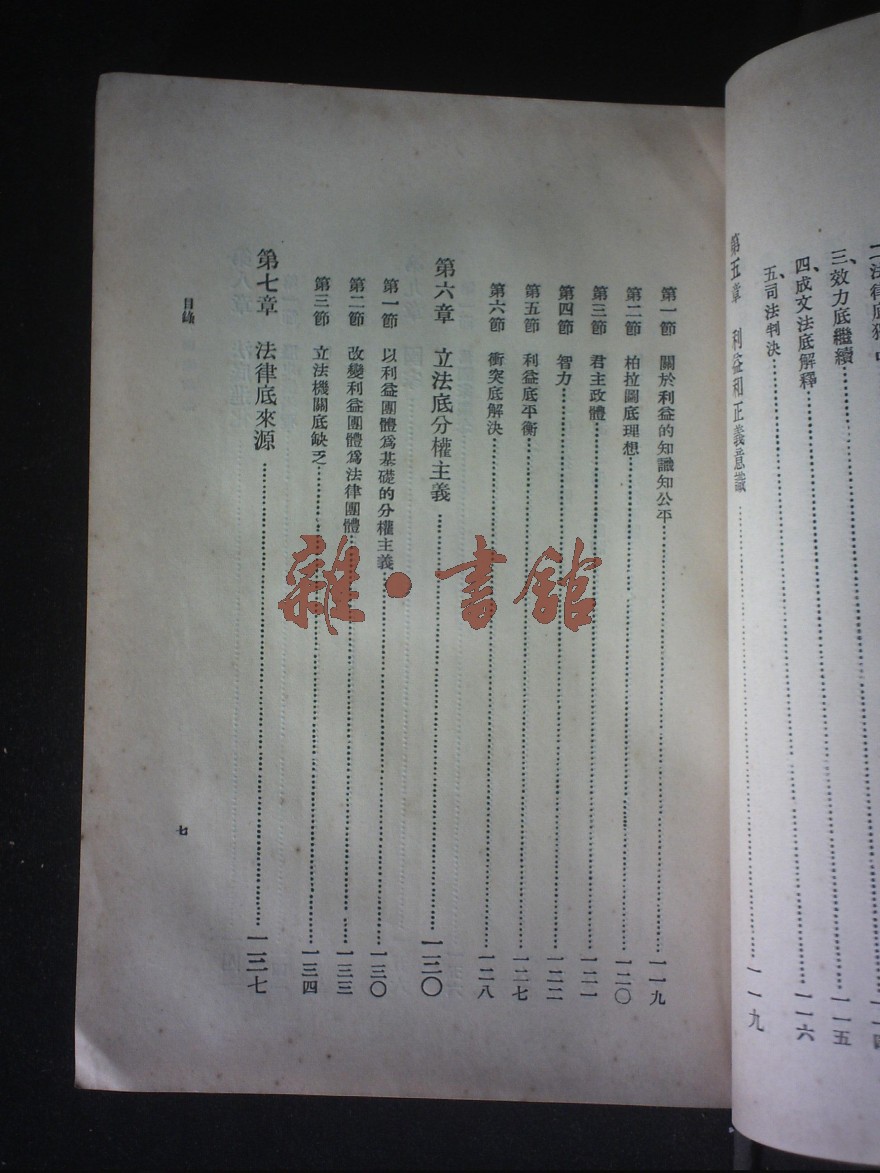 三、效力底繼續……一一五
四、成文法底解釋……一一六
五、司法判決
第五章 利益和正義意識……一一九
第一節 關於利益的知識知公平……一一九
第二節 柏拉圖底理想……一二〇
第三節 君主政體……一二一
第四節 智力……一二二
第五節 利益底平衡……一二七
第六節 衝突底解決……一二八
第六章 立法底分權主義……一三〇
第一節 以利益團體爲基礎的分權主義……一三〇
第二節 改變利益團體爲法律團體……一三三
第三節 立法機關底缺乏……一三四
第七章 法律底來源……一三七
目錄
七
雜·書館